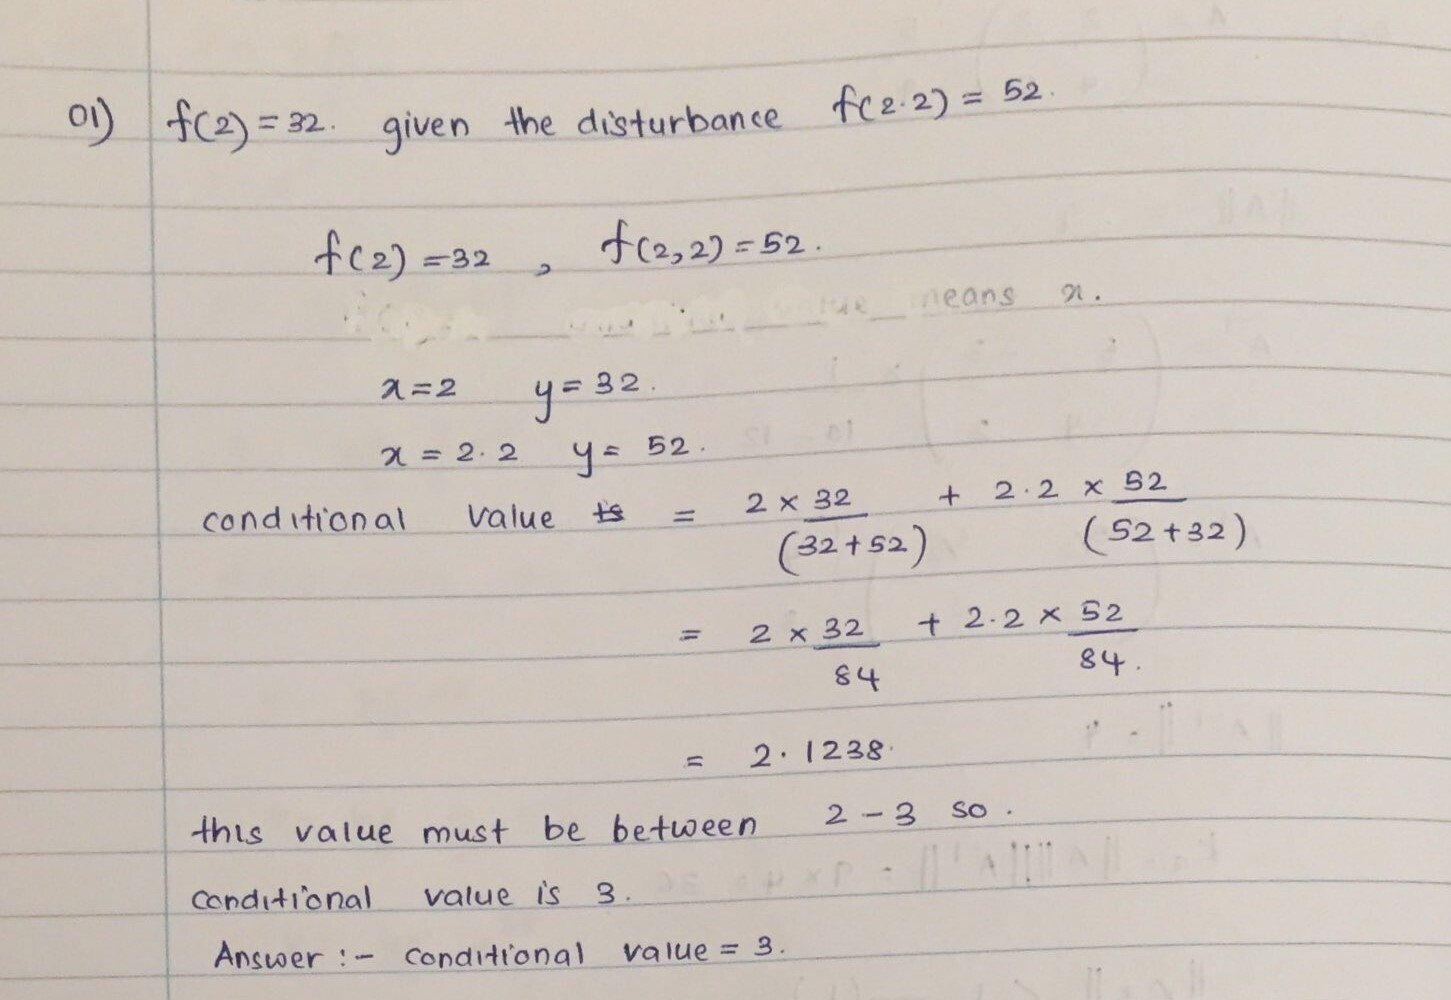 01) f(2) = 32. given the disturbance f(2.2) = 52.
f(2) = 32 , f(2,2) = 52.
means x.
x = 2 y = 32.
x = 2.2 y = 52.
conditional value is = 2 × 32/(32+52) + 2.2 × 52/(52+32)
= 2 × 32/84 + 2.2 × 52/84.
= 2.1238.
this value must be between 2 - 3 so.
conditional value is 3.
Answer :- conditional value = 3.